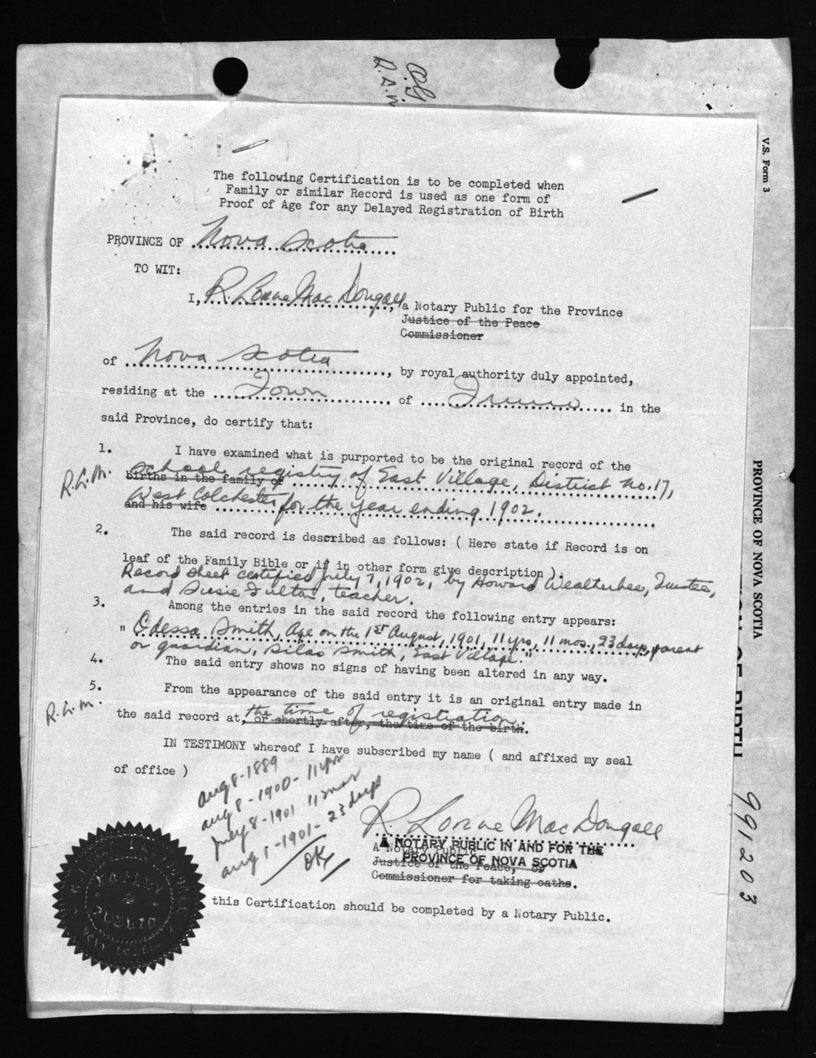 O.G.
R.A.W
V.S. Form 3
The following Certification is to be completed when
Family or similar Record is used as one form of
Proof of Age for any Delayed Registration of Birth
PROVINCE OF Nova Scotia
TO WIT:
I, R. Lorne MacDougall, a Notary Public for the Province
Justice of the Peace
Commissioner
of Nova Scotia, by royal authority duly appointed,
residing at the Town of Truro in the
said Province, do certify that:
1. I have examined what is purported to be the original record of the
R.L.M. births in the family of school registry of East Village, District No. 17,
and his wife West Colchester for the year ending 1902.
2. The said record is described as follows: ( Here state if Record is on
leaf of the Family Bible or if in other form give description ).
Record sheet certified July 7, 1902, by Howard Wealherbee, Trustee,
and Susie Fulton, teacher.
3. Among the entries in the said record the following entry appears:
" Odessa Smith, Age on the 1st August, 1901, 11 yrs, 11 mos, 23 days, parent
or guardian, Silas Smith, East Village."
4. The said entry shows no signs of having been altered in any way.
5. From the appearance of the said entry it is an original entry made in
R.L.M. the said record at, or shortly after, the time of the birth.
the time of registration.
IN TESTIMONY whereof I have subscribed my name ( and affixed my seal
of office )
Aug 8-1889
Aug 8-1900- 11 yrs
July 8-1901 11 mos
Aug 1-1901- 23 days
OK
R. Lorne MacDougall
A Notary Public
A NOTARY PUBLIC IN AND FOR THE
PROVINCE OF NOVA SCOTIA
Justice of the Peace, or
Commissioner for taking oaths.
this Certification should be completed by a Notary Public.
PROVINCE OF NOVA SCOTIA
OF BIRTH
991203